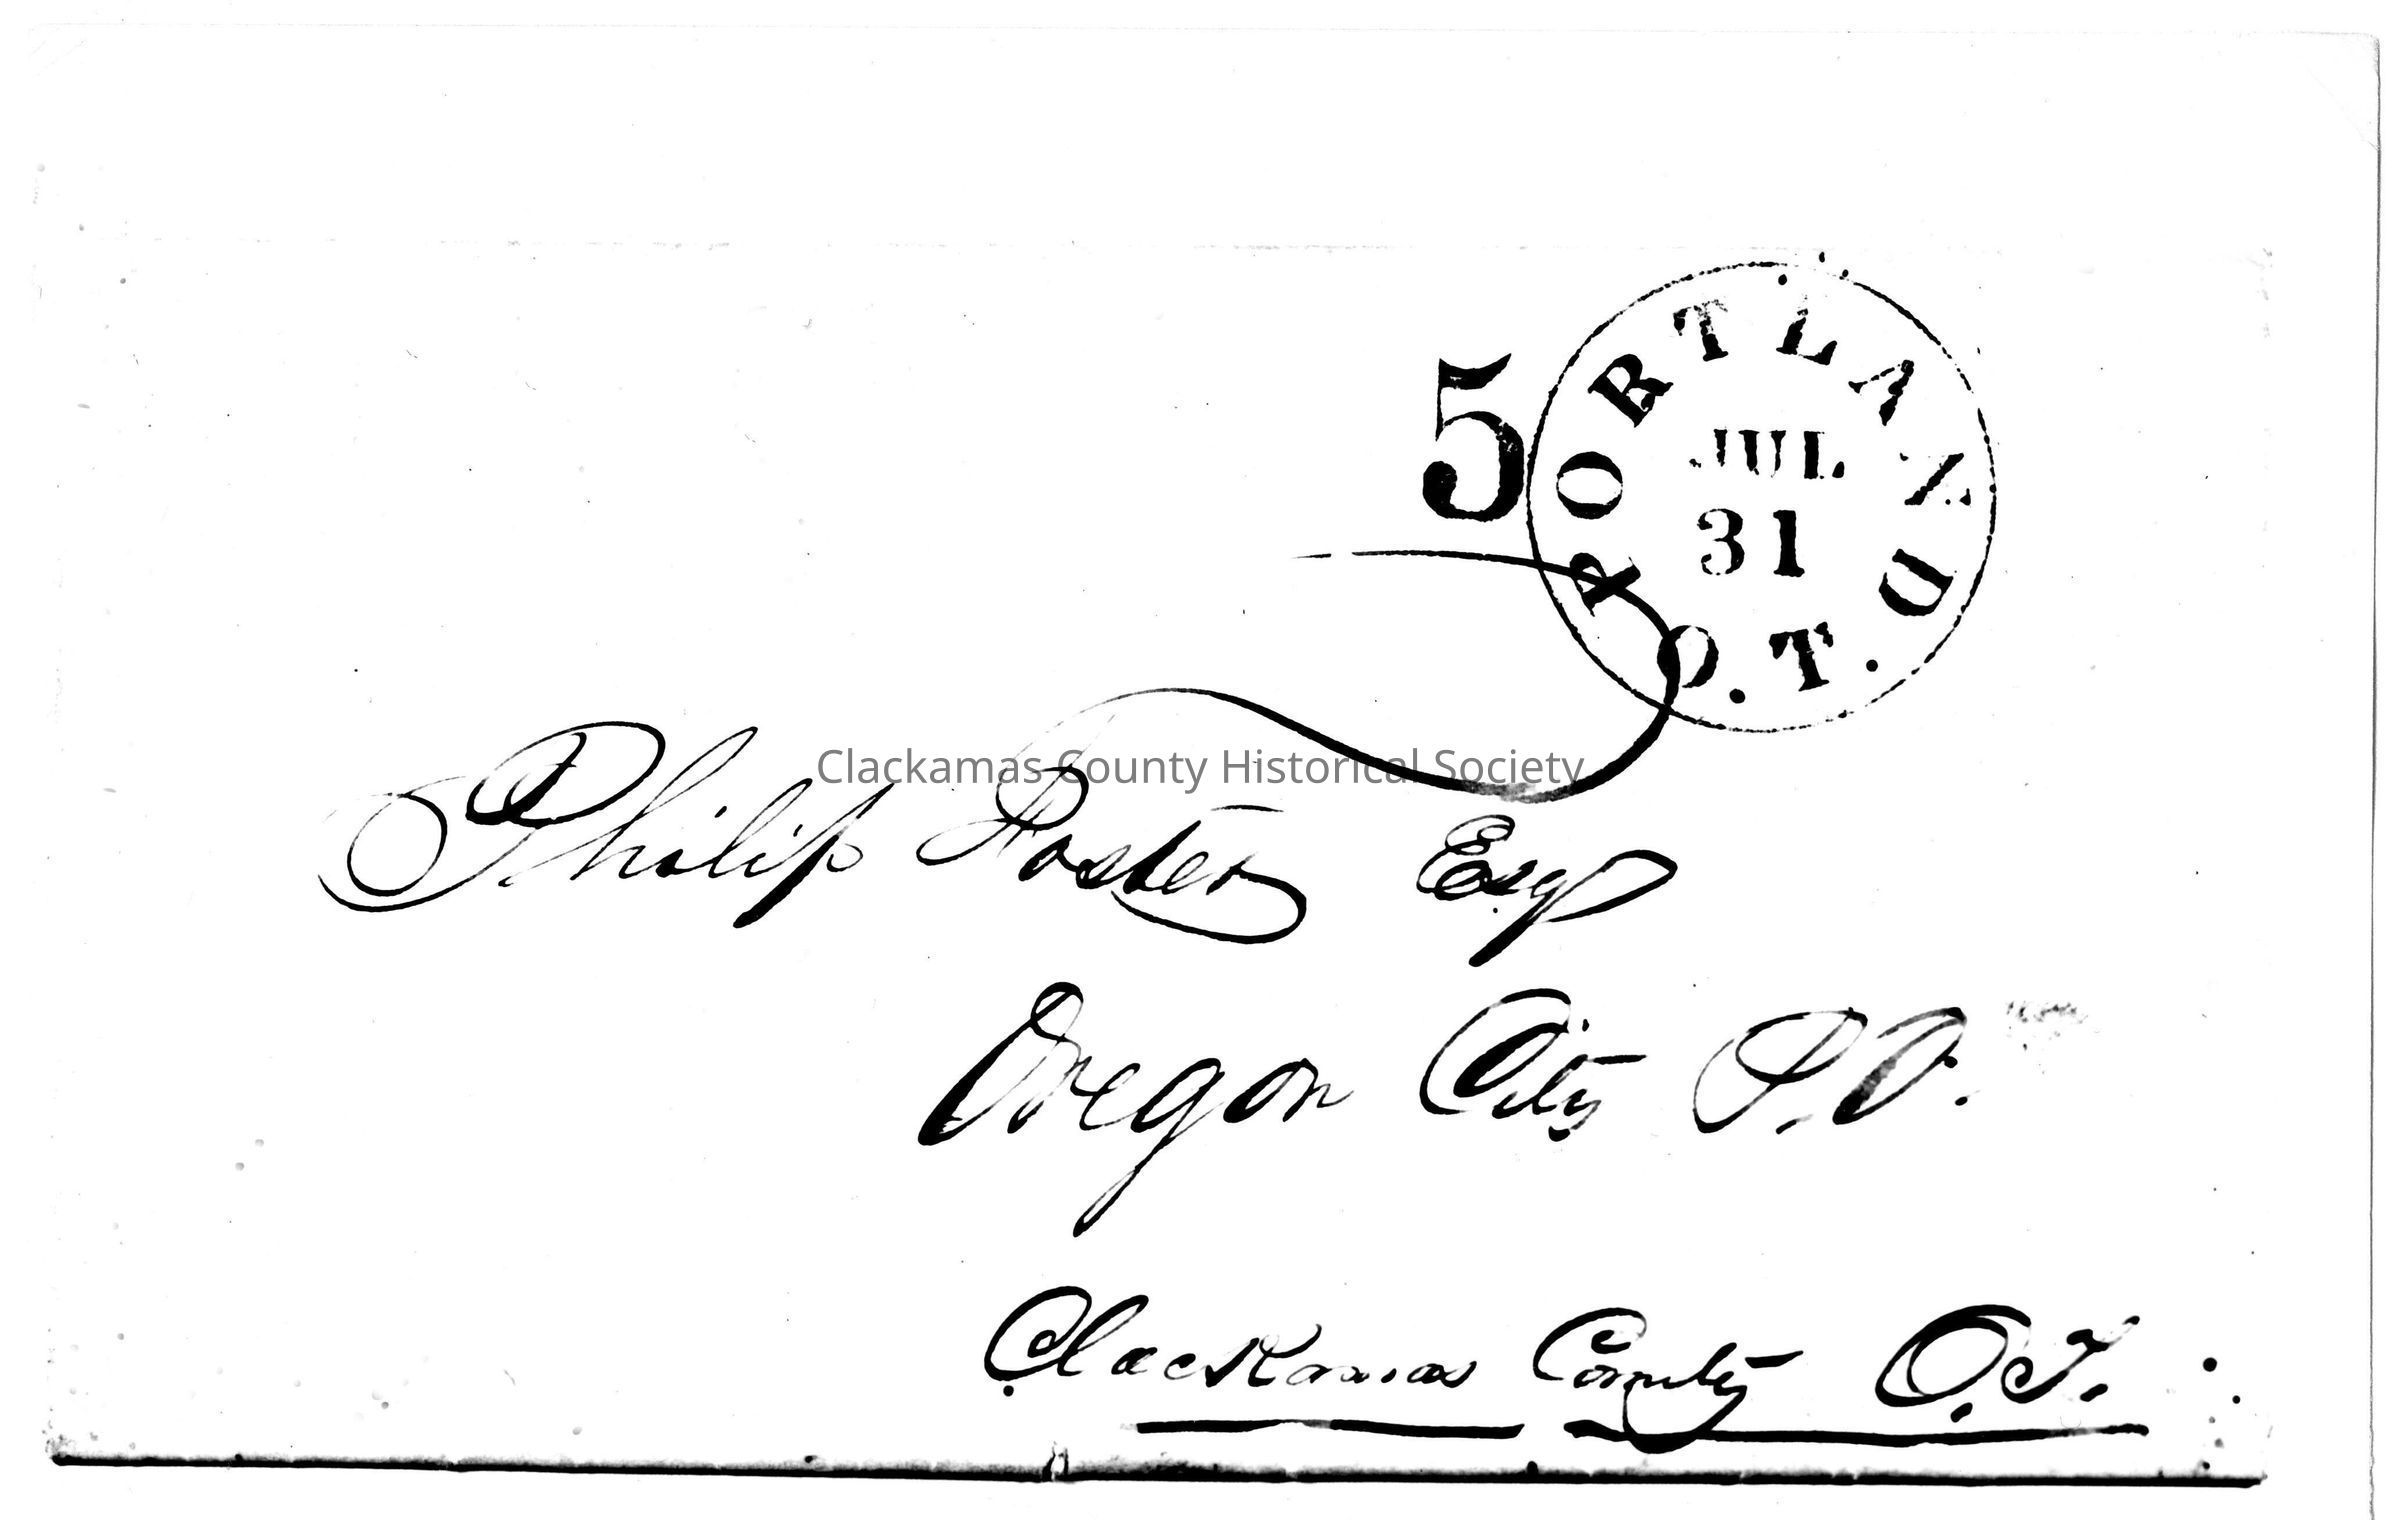 5
PORTLAND O.T.
JUL
31
Clackamas County Historical Society
Philip Foster Esqr
Oregon City P.O.
Clackamas County O.T.